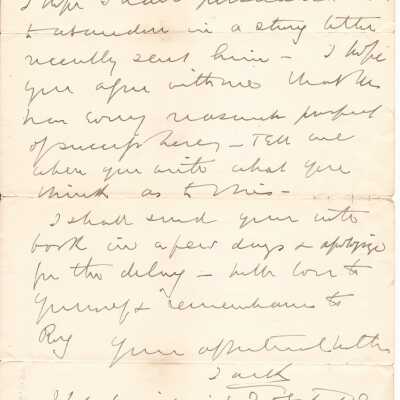 I hope I have
to abandon in a strong letter
recently sent him - I hope
you agree with me that he
has every reasonable prospect
of success here, - Tell me
when you write what you
think as to this -
I shall send your
book in a few days & apologize
for the delay - with love to
yourself & remembrances to
Roy Your affectionate
Jack